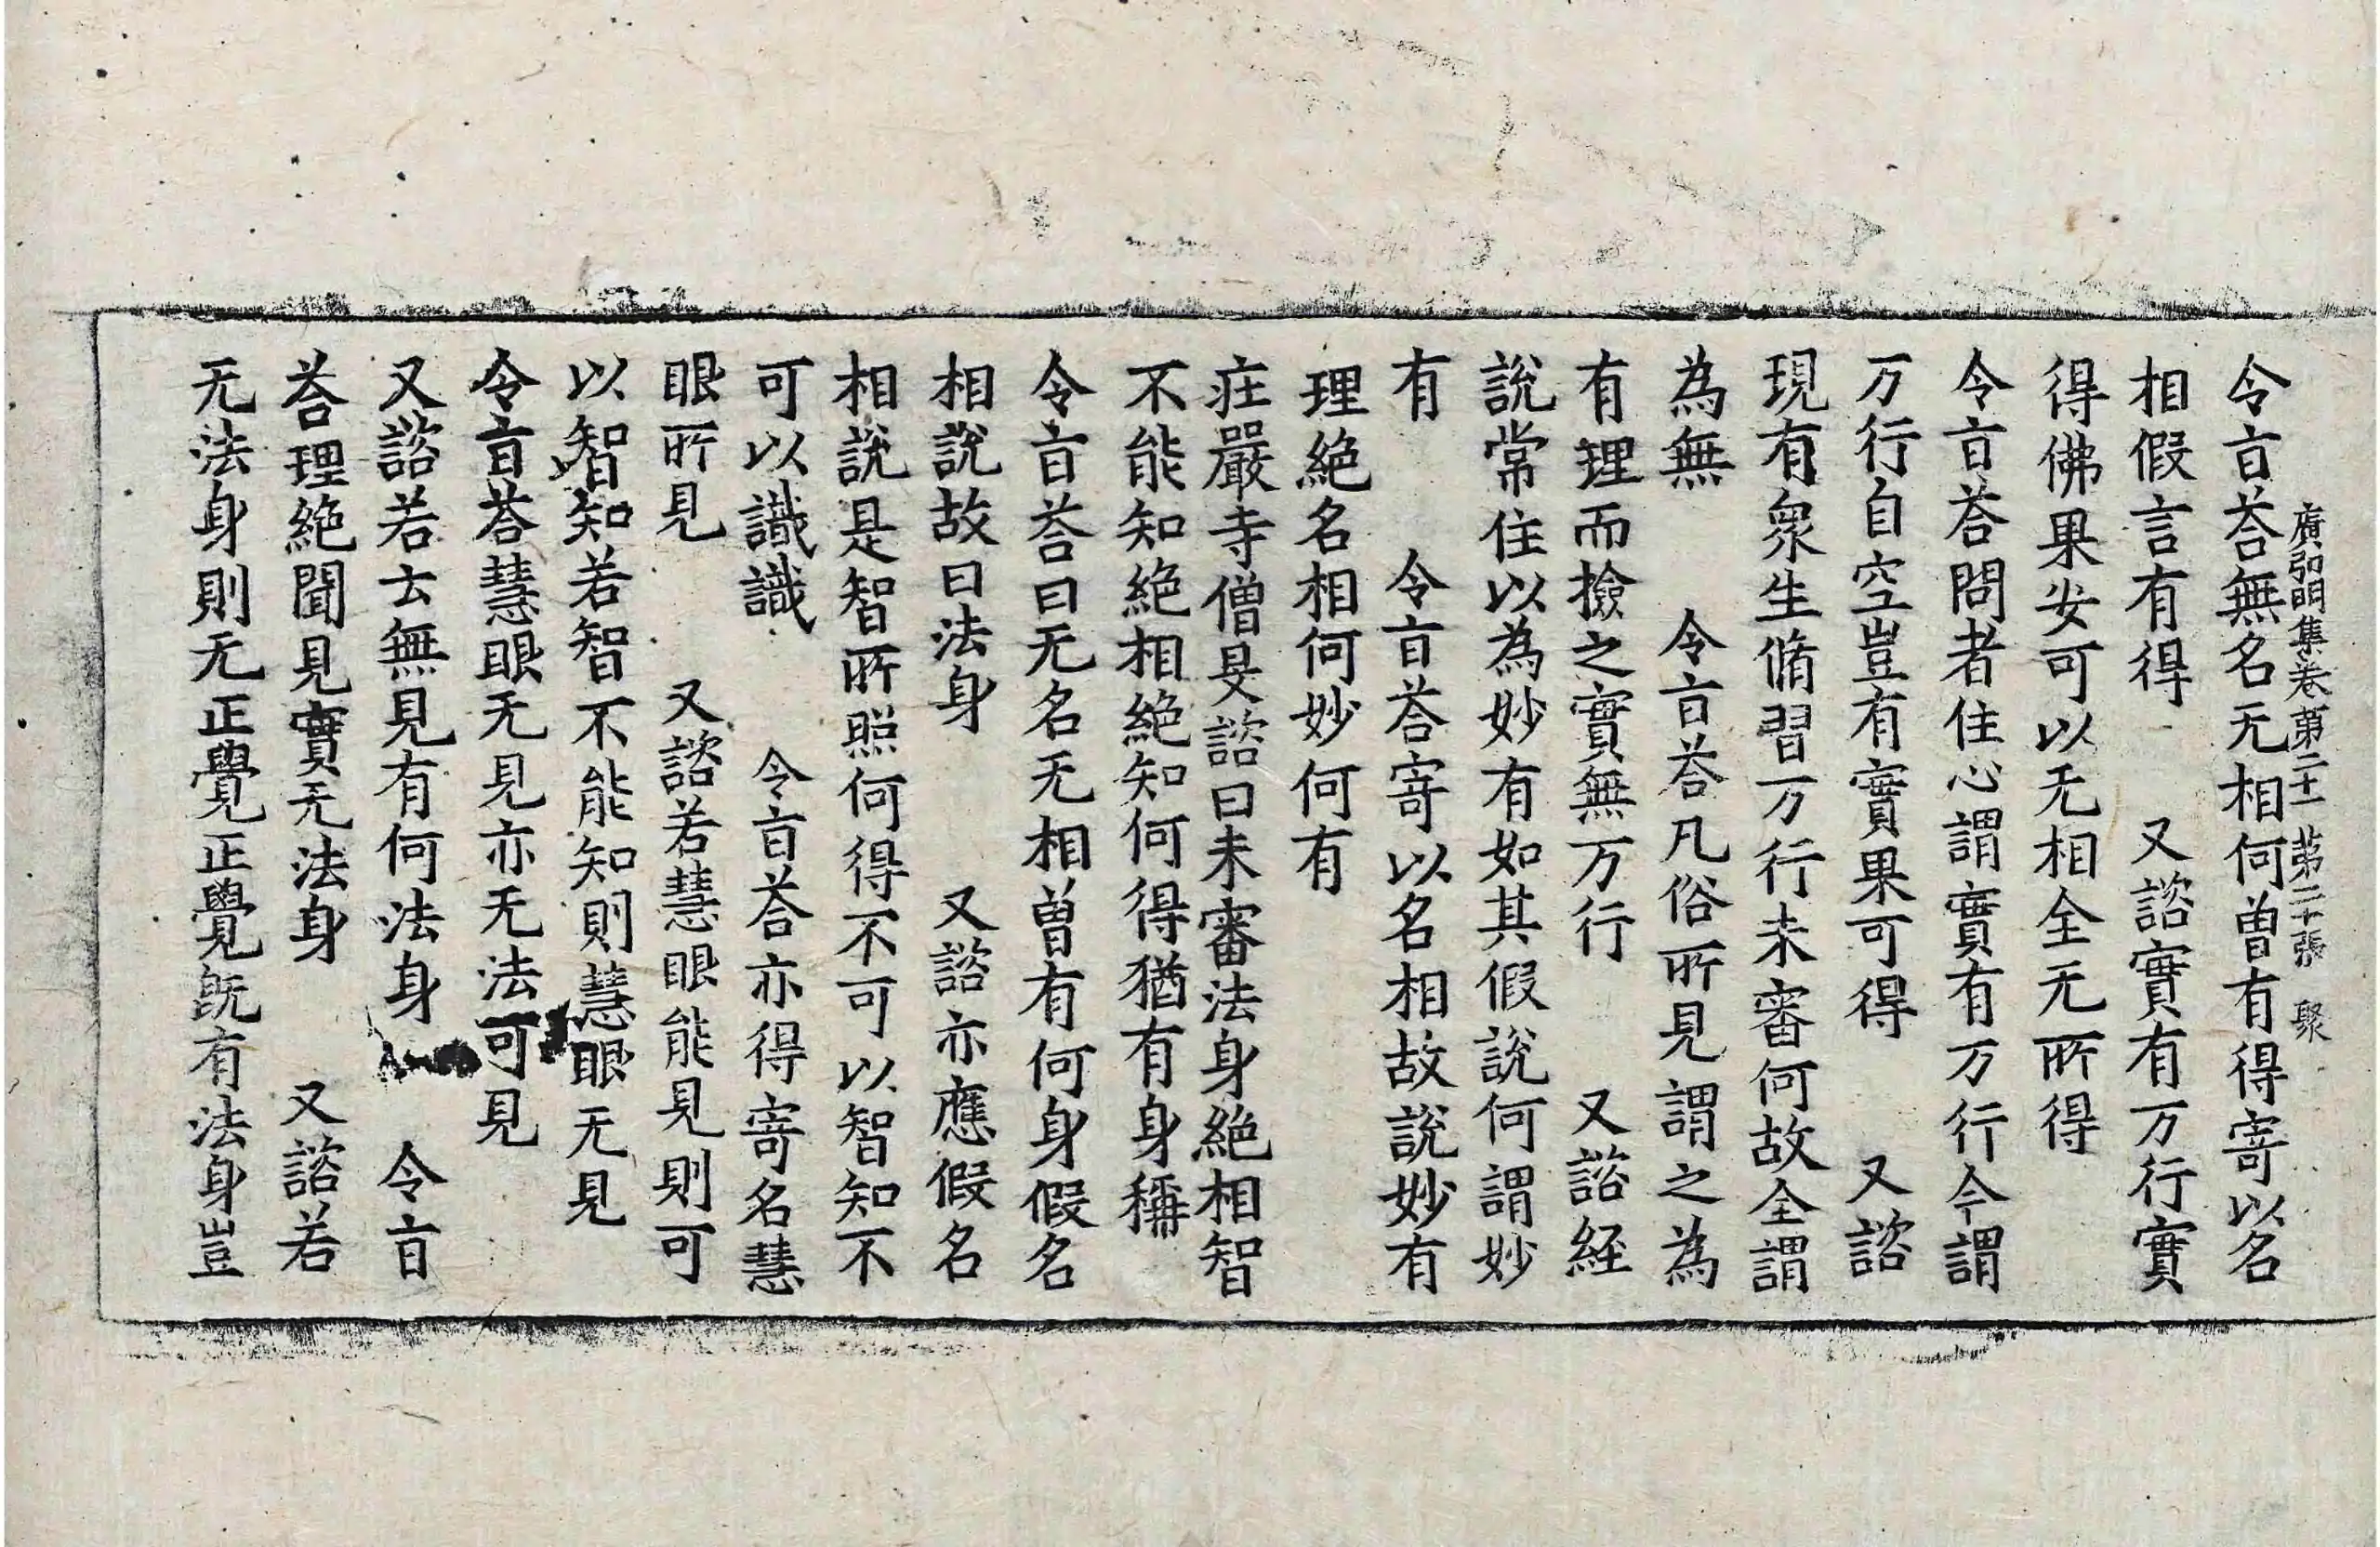 廣弘明集卷第二十一 第二十張 聚
令旨荅無名无相何曽有得寄以名
相假言有得 又諮實有万行實
得佛果安可以无相全无所得
令旨荅問者住心謂實有万行今謂
万行自空豈有實果可得 又諮
現有衆生脩習万行未審何故全謂
為無 令旨荅凡俗所見謂之為
有理而撿之實無万行 又諮経
說常住以為妙有如其假說何謂妙
有 令旨荅寄以名相故說妙有
理絶名相何妙何有
莊嚴寺僧旻諮曰未審法身絶相智
不能知絶相絶知何得猶有身稱
令旨荅曰无名无相曽有何身假名
相說故曰法身 又諮亦應假名
相說是智所照何得不可以智知不
可以識識 令旨荅亦得寄名慧
眼所見 又諮若慧眼能見則可
以智知若智不能知則慧眼无見
令旨荅慧眼无見亦无法可見
又諮若云無見有何法身 令旨
荅理絶聞見實无法身 又諮若
无法身則无正覺正覺旣有法身豈